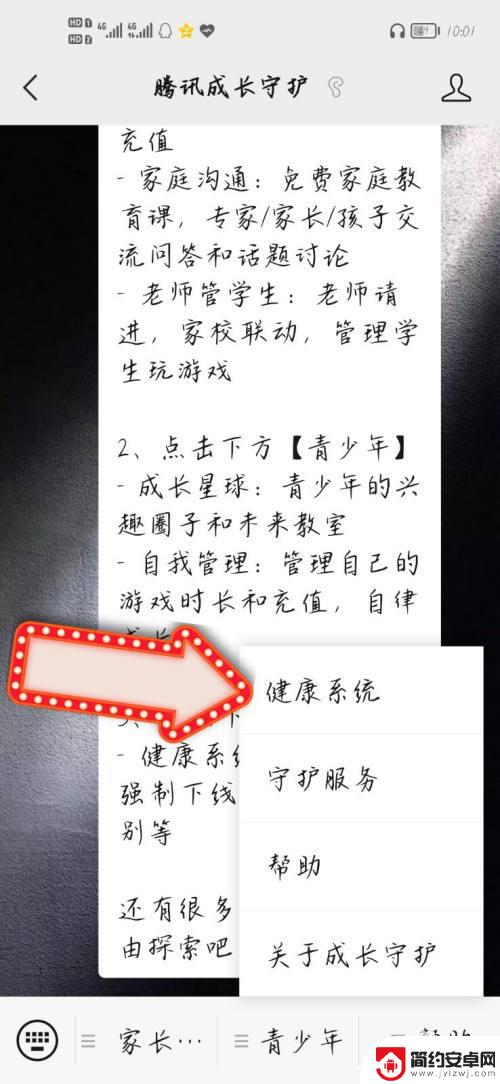 HD 1 4G 4G 10:01
HD 2
腾讯成长守护
充值
- 家庭沟通：免费家庭教
育课，专家/家长/孩子交
流问答和话题讨论
- 老师管学生：老师请
进，家校联动，管理学
生玩游戏
2、点击下方【青少年】
- 成长星球：青少年的兴
趣圈子和未来教室
- 自我管理：管理自己的
游戏时长和充值，自律
健康系统
- 健康系
强制下线
守护服务
别等
帮助
还有很多
由探索吧
关于成长守护
家长…
青少年
简约安卓网
www.jylzwj.com